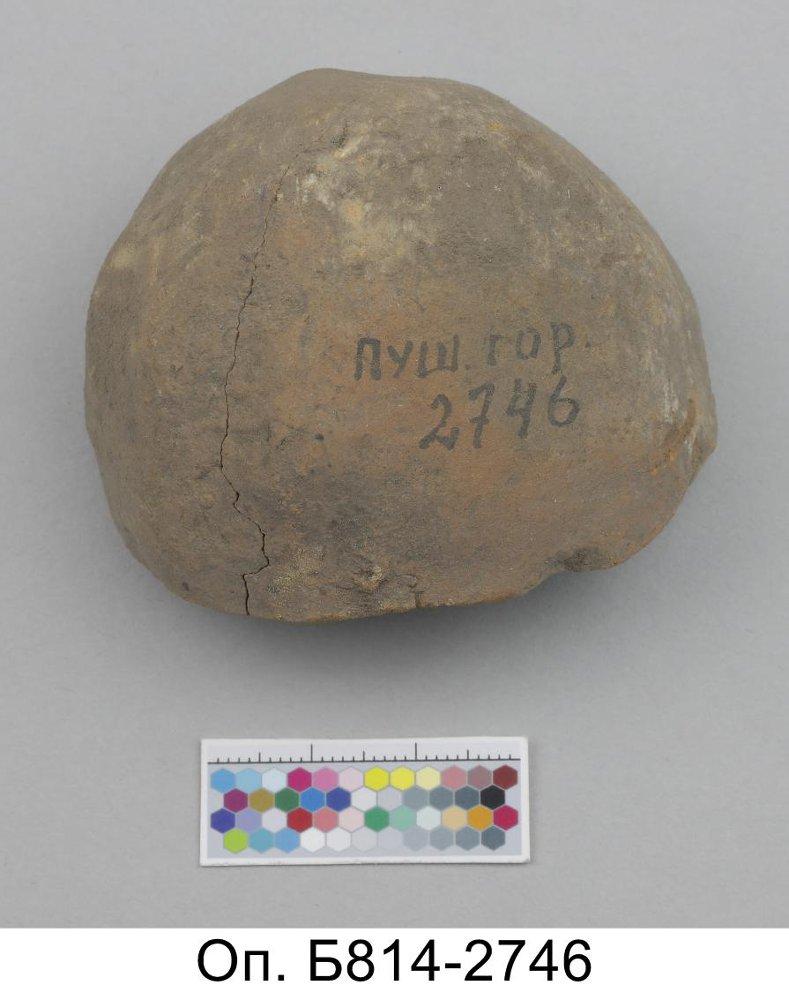 ПУШ. ГОР.
2746
Оп. Б814-2746